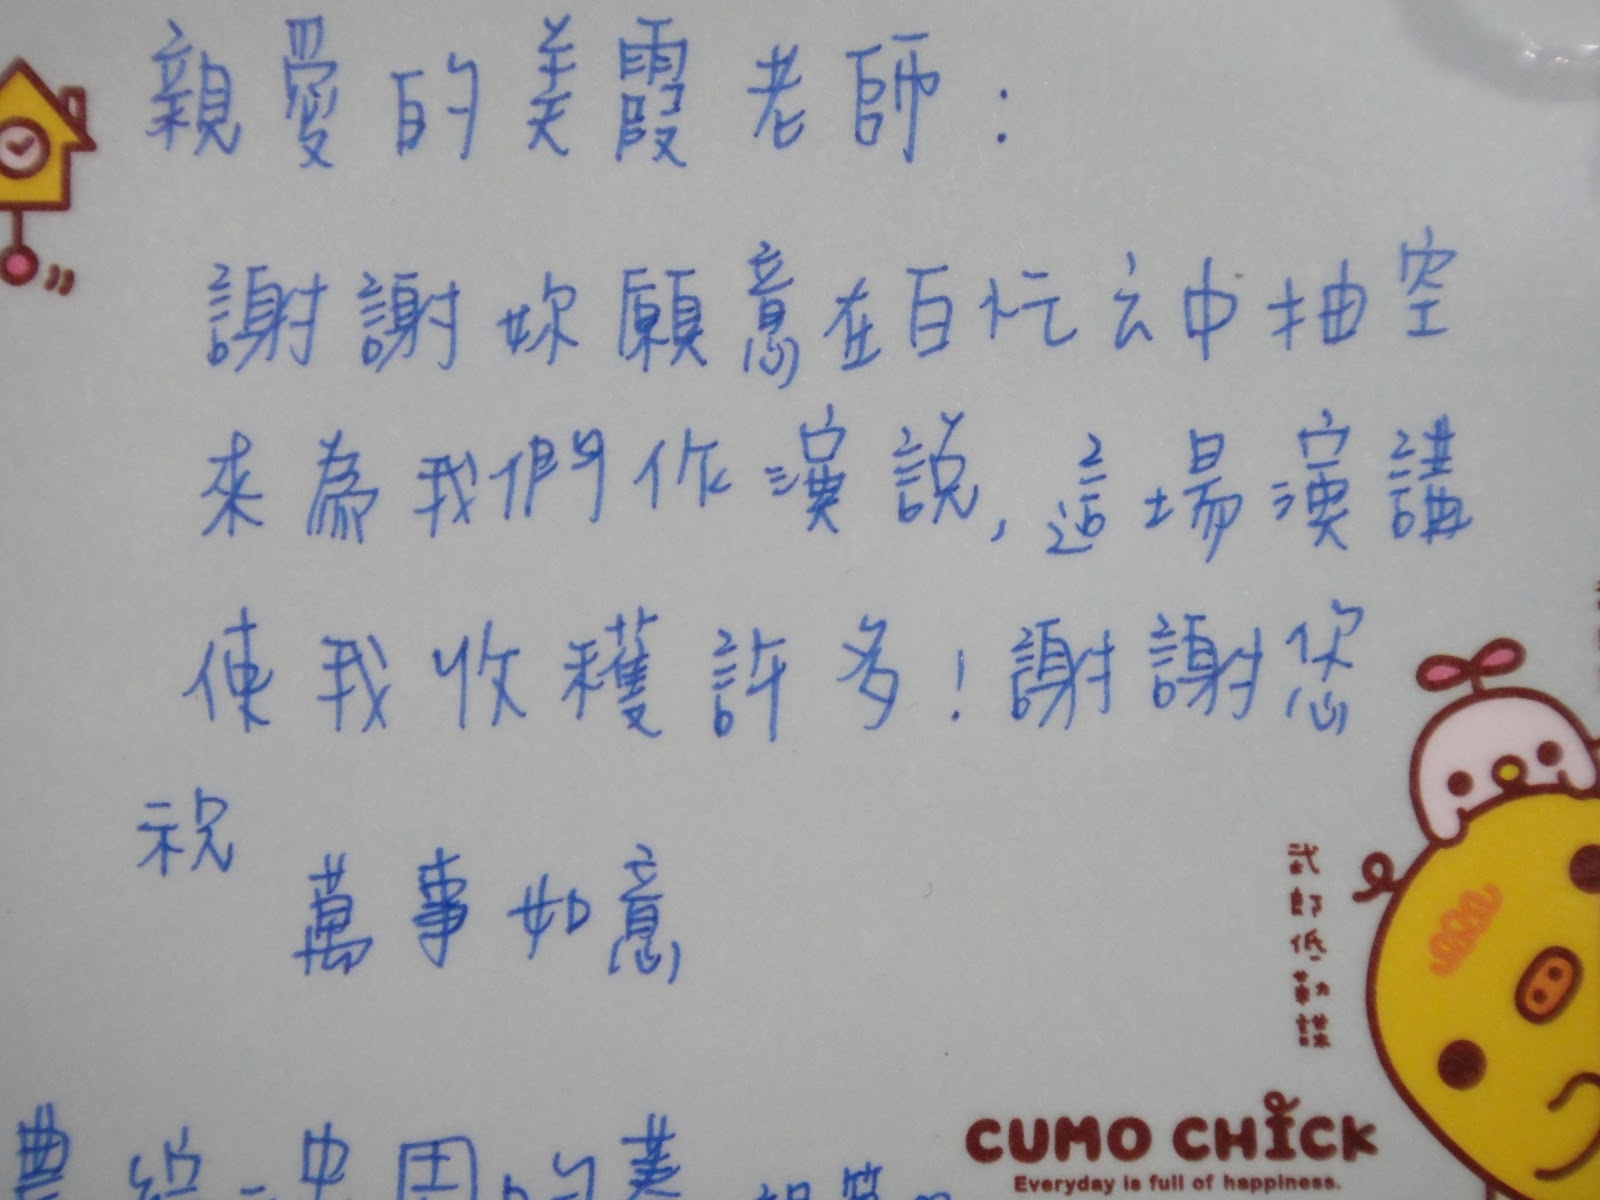 親愛的美霞老師：
謝謝妳願意在百忙之中抽空
來為我們作演說，這場演講
使我收穫許多！謝謝您
祝
萬事如意
CUMO CHICK
Everyday is full of happiness.